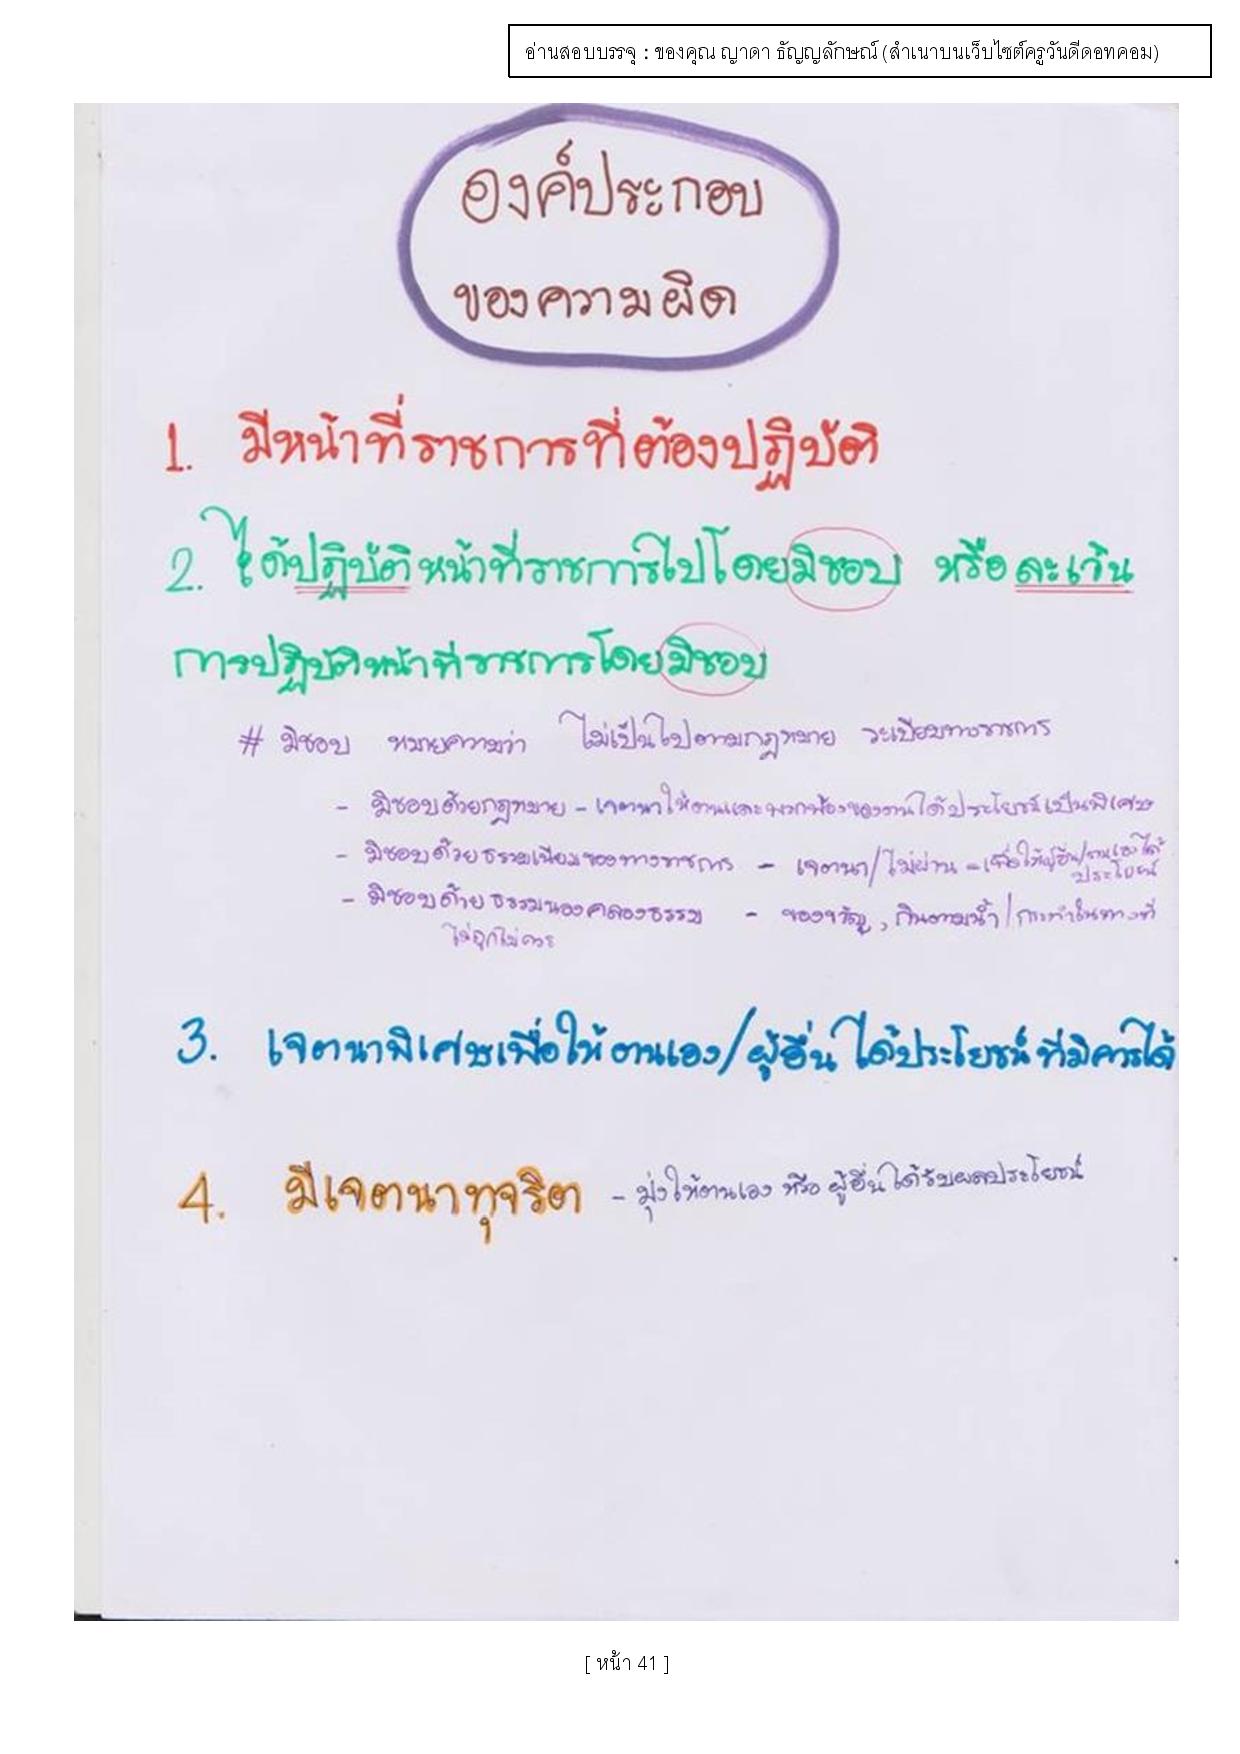 อ่านสอบบรรจุ : ของคุณ ญาดา ธัญญลักษณ์ (สำเนาบนเว็บไซต์ครูวันดีดอทคอม)
องค์ประกอบ
ของความผิด
1. มีหน้าที่ราชการที่ต้องปฏิบัติ
2. ได้ปฏิบัติหน้าที่ราชการไปโดยมิชอบ หรือละเว้น
การปฏิบัติหน้าที่ราชการโดยมิชอบ
# มิชอบ หมายความว่า ไม่เป็นไปตามกฎหมาย ระเบียบทางราชการ
- มิชอบด้วยกฎหมาย - เจตนาให้ตนและพวกพ้องของตนได้ประโยชน์เป็นพิเศษ
- มิชอบด้วยธรรมเนียมของทางราชการ - เจตนา/ไม่ผ่าน - เพื่อให้ผู้อื่น/ตนเองได้
ประโยชน์
- มิชอบด้วยธรรมนองคลองธรรม - ของขวัญ, กินตามน้ำ/กระทำในทางที่
ไม่ถูกไม่ควร
3. เจตนาพิเศษเพื่อให้ตนเอง/ผู้อื่นได้ประโยชน์ที่มิควรได้
4. มีเจตนาทุจริต - มุ่งให้ตนเอง หรือ ผู้อื่นได้รับผลประโยชน์
[ หน้า 41 ]